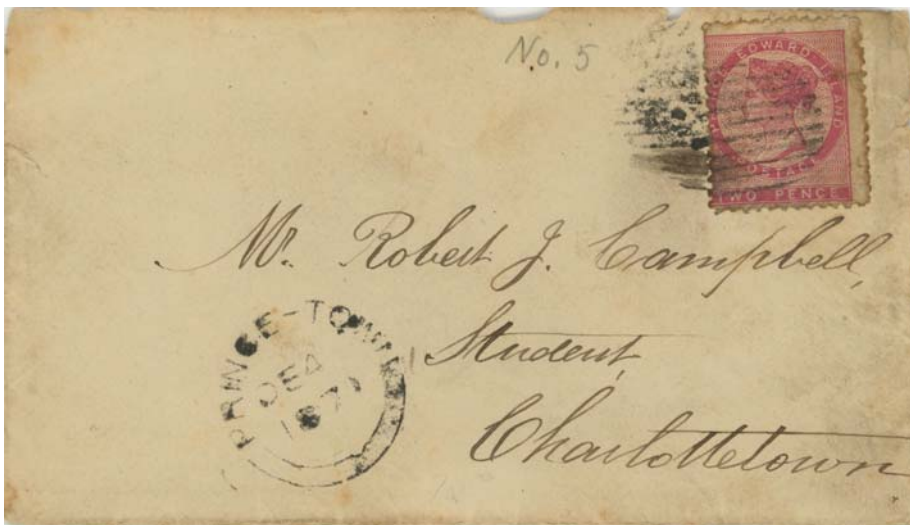 No. 5
PRINCE EDWARD ISLAND
POSTAGE
TWO PENCE
Mr. Robert J. Campbell,
Student,
Charlottetown
PRINCE-TOWN
DE 4
187